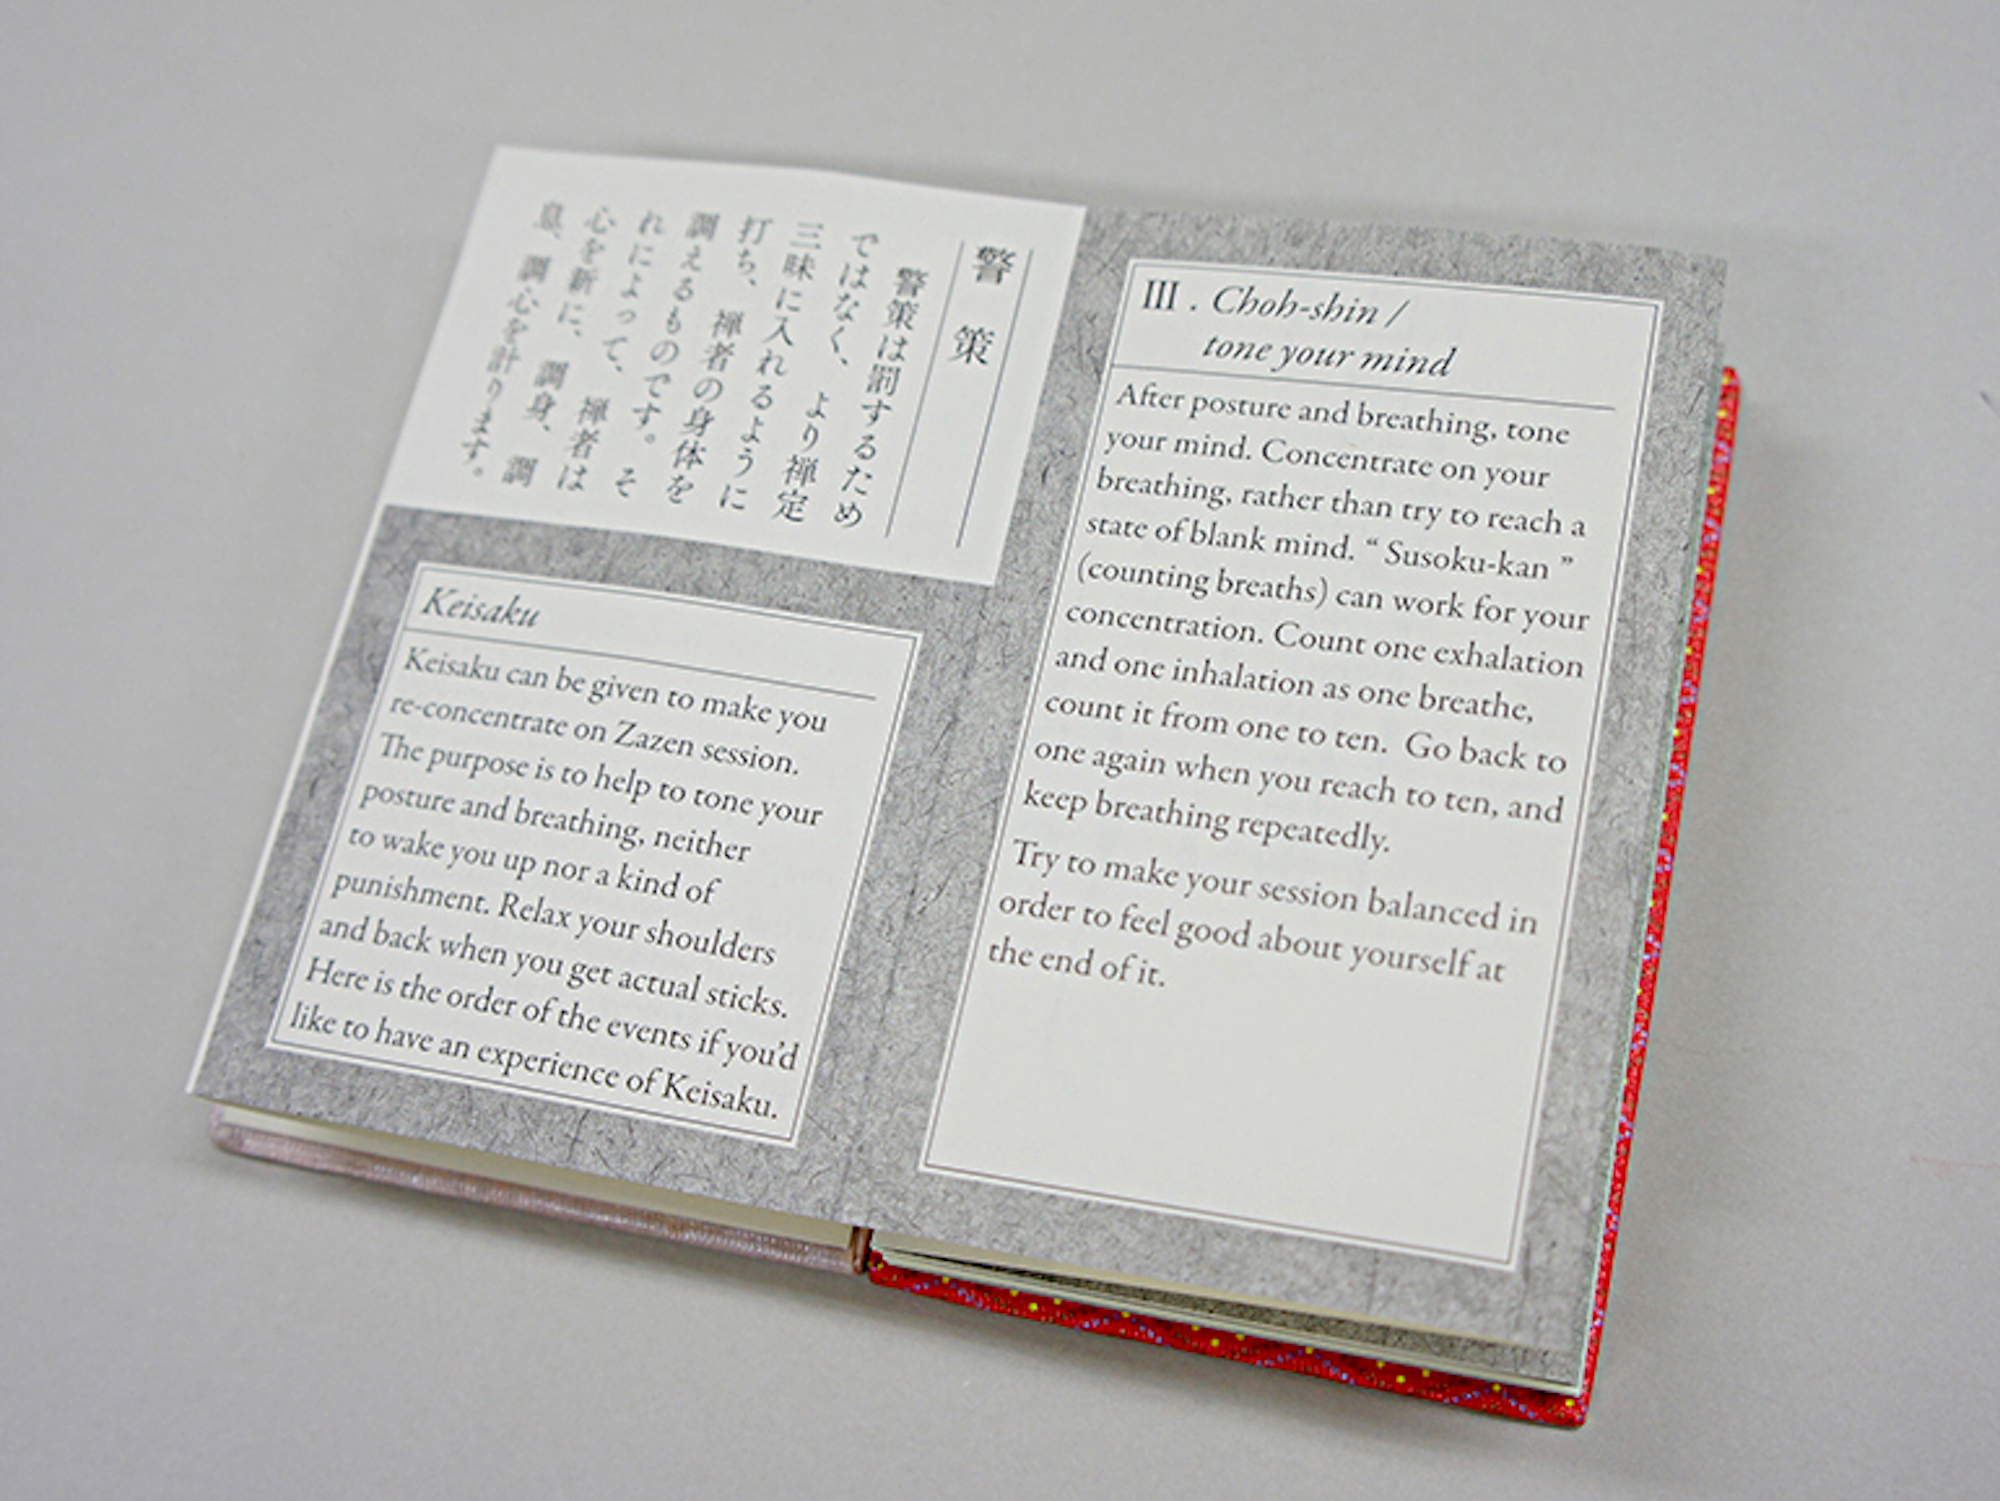 警策
警策は罰するため
ではなく、より禅定
三昧に入れるように
打ち、禅者の身体を
調えるものです。そ
れによって、禅者は
心を新に、調身、調
息、調心を計ります。
Keisaku
Keisaku can be given to make you
re-concentrate on Zazen session.
The purpose is to help to tone your
posture and breathing, neither
to wake you up nor a kind of
punishment. Relax your shoulders
and back when you get actual sticks.
Here is the order of the events if you’d
like to have an experience of Keisaku.
III . Choh-shin /
tone your mind
After posture and breathing, tone
your mind. Concentrate on your
breathing, rather than try to reach a
state of blank mind. “ Susoku-kan ”
(counting breaths) can work for your
concentration. Count one exhalation
and one inhalation as one breathe,
count it from one to ten. Go back to
one again when you reach to ten, and
keep breathing repeatedly.
Try to make your session balanced in
order to feel good about yourself at
the end of it.